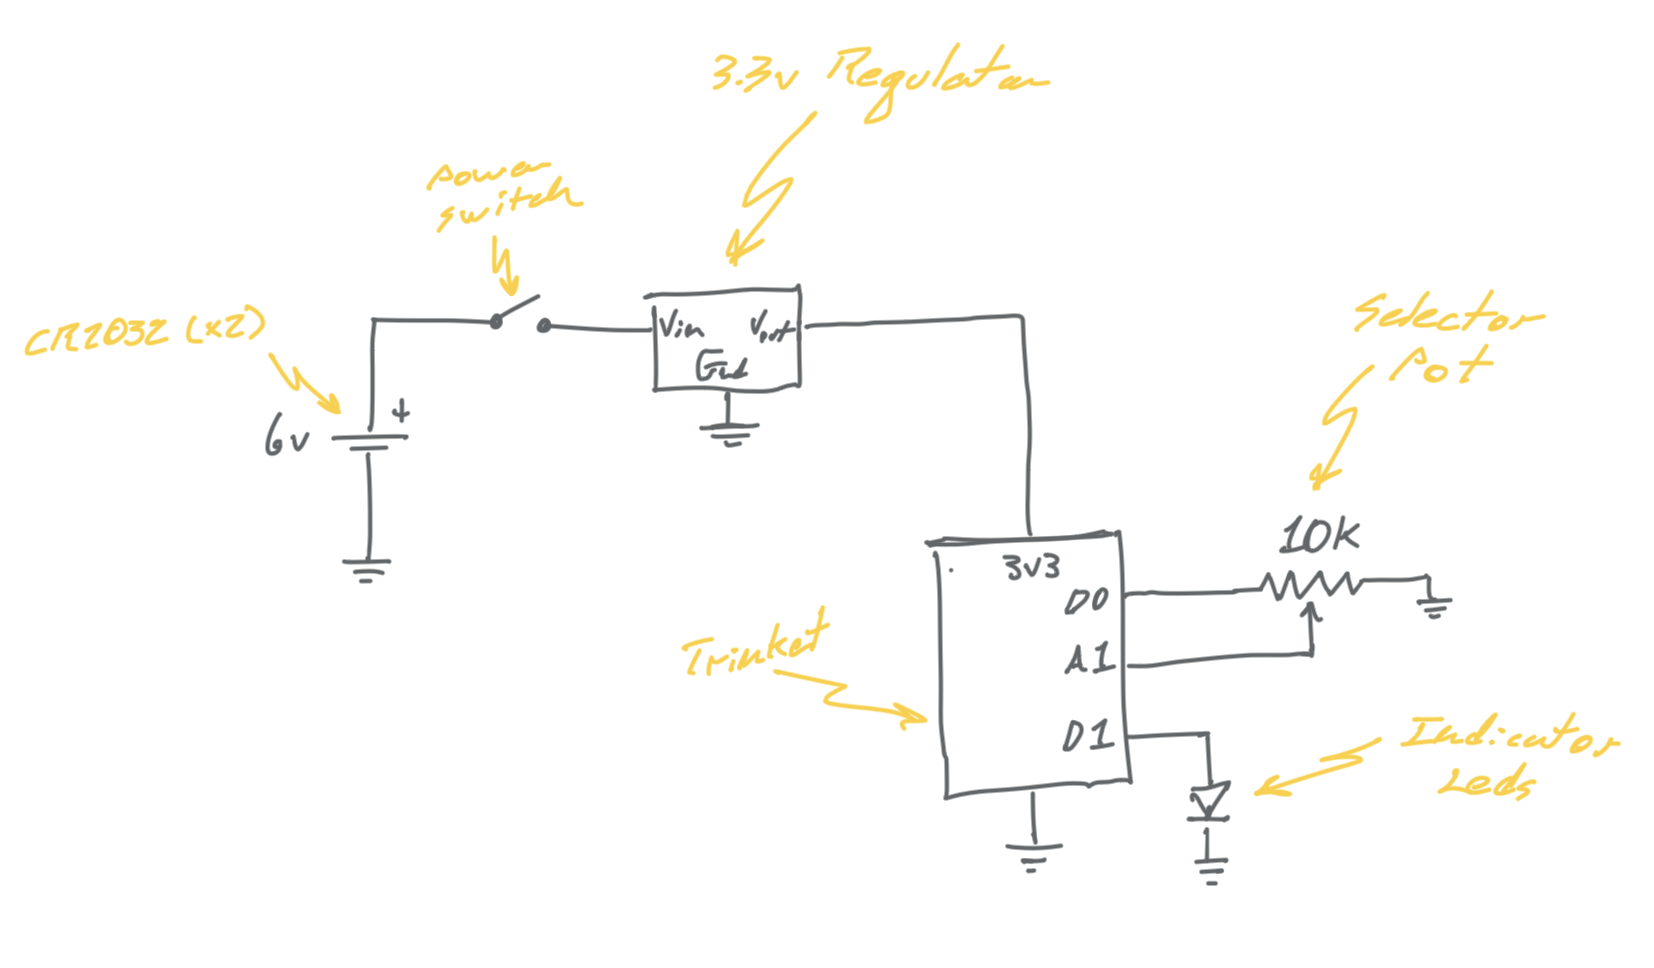 3.3v Regulator
power
switch
CR2032 (x2)
6v
+
Vin
Vout
Gnd
Selector
Pot
10k
3v3
D0
A1
D1
Trinket
Indicator
Leds